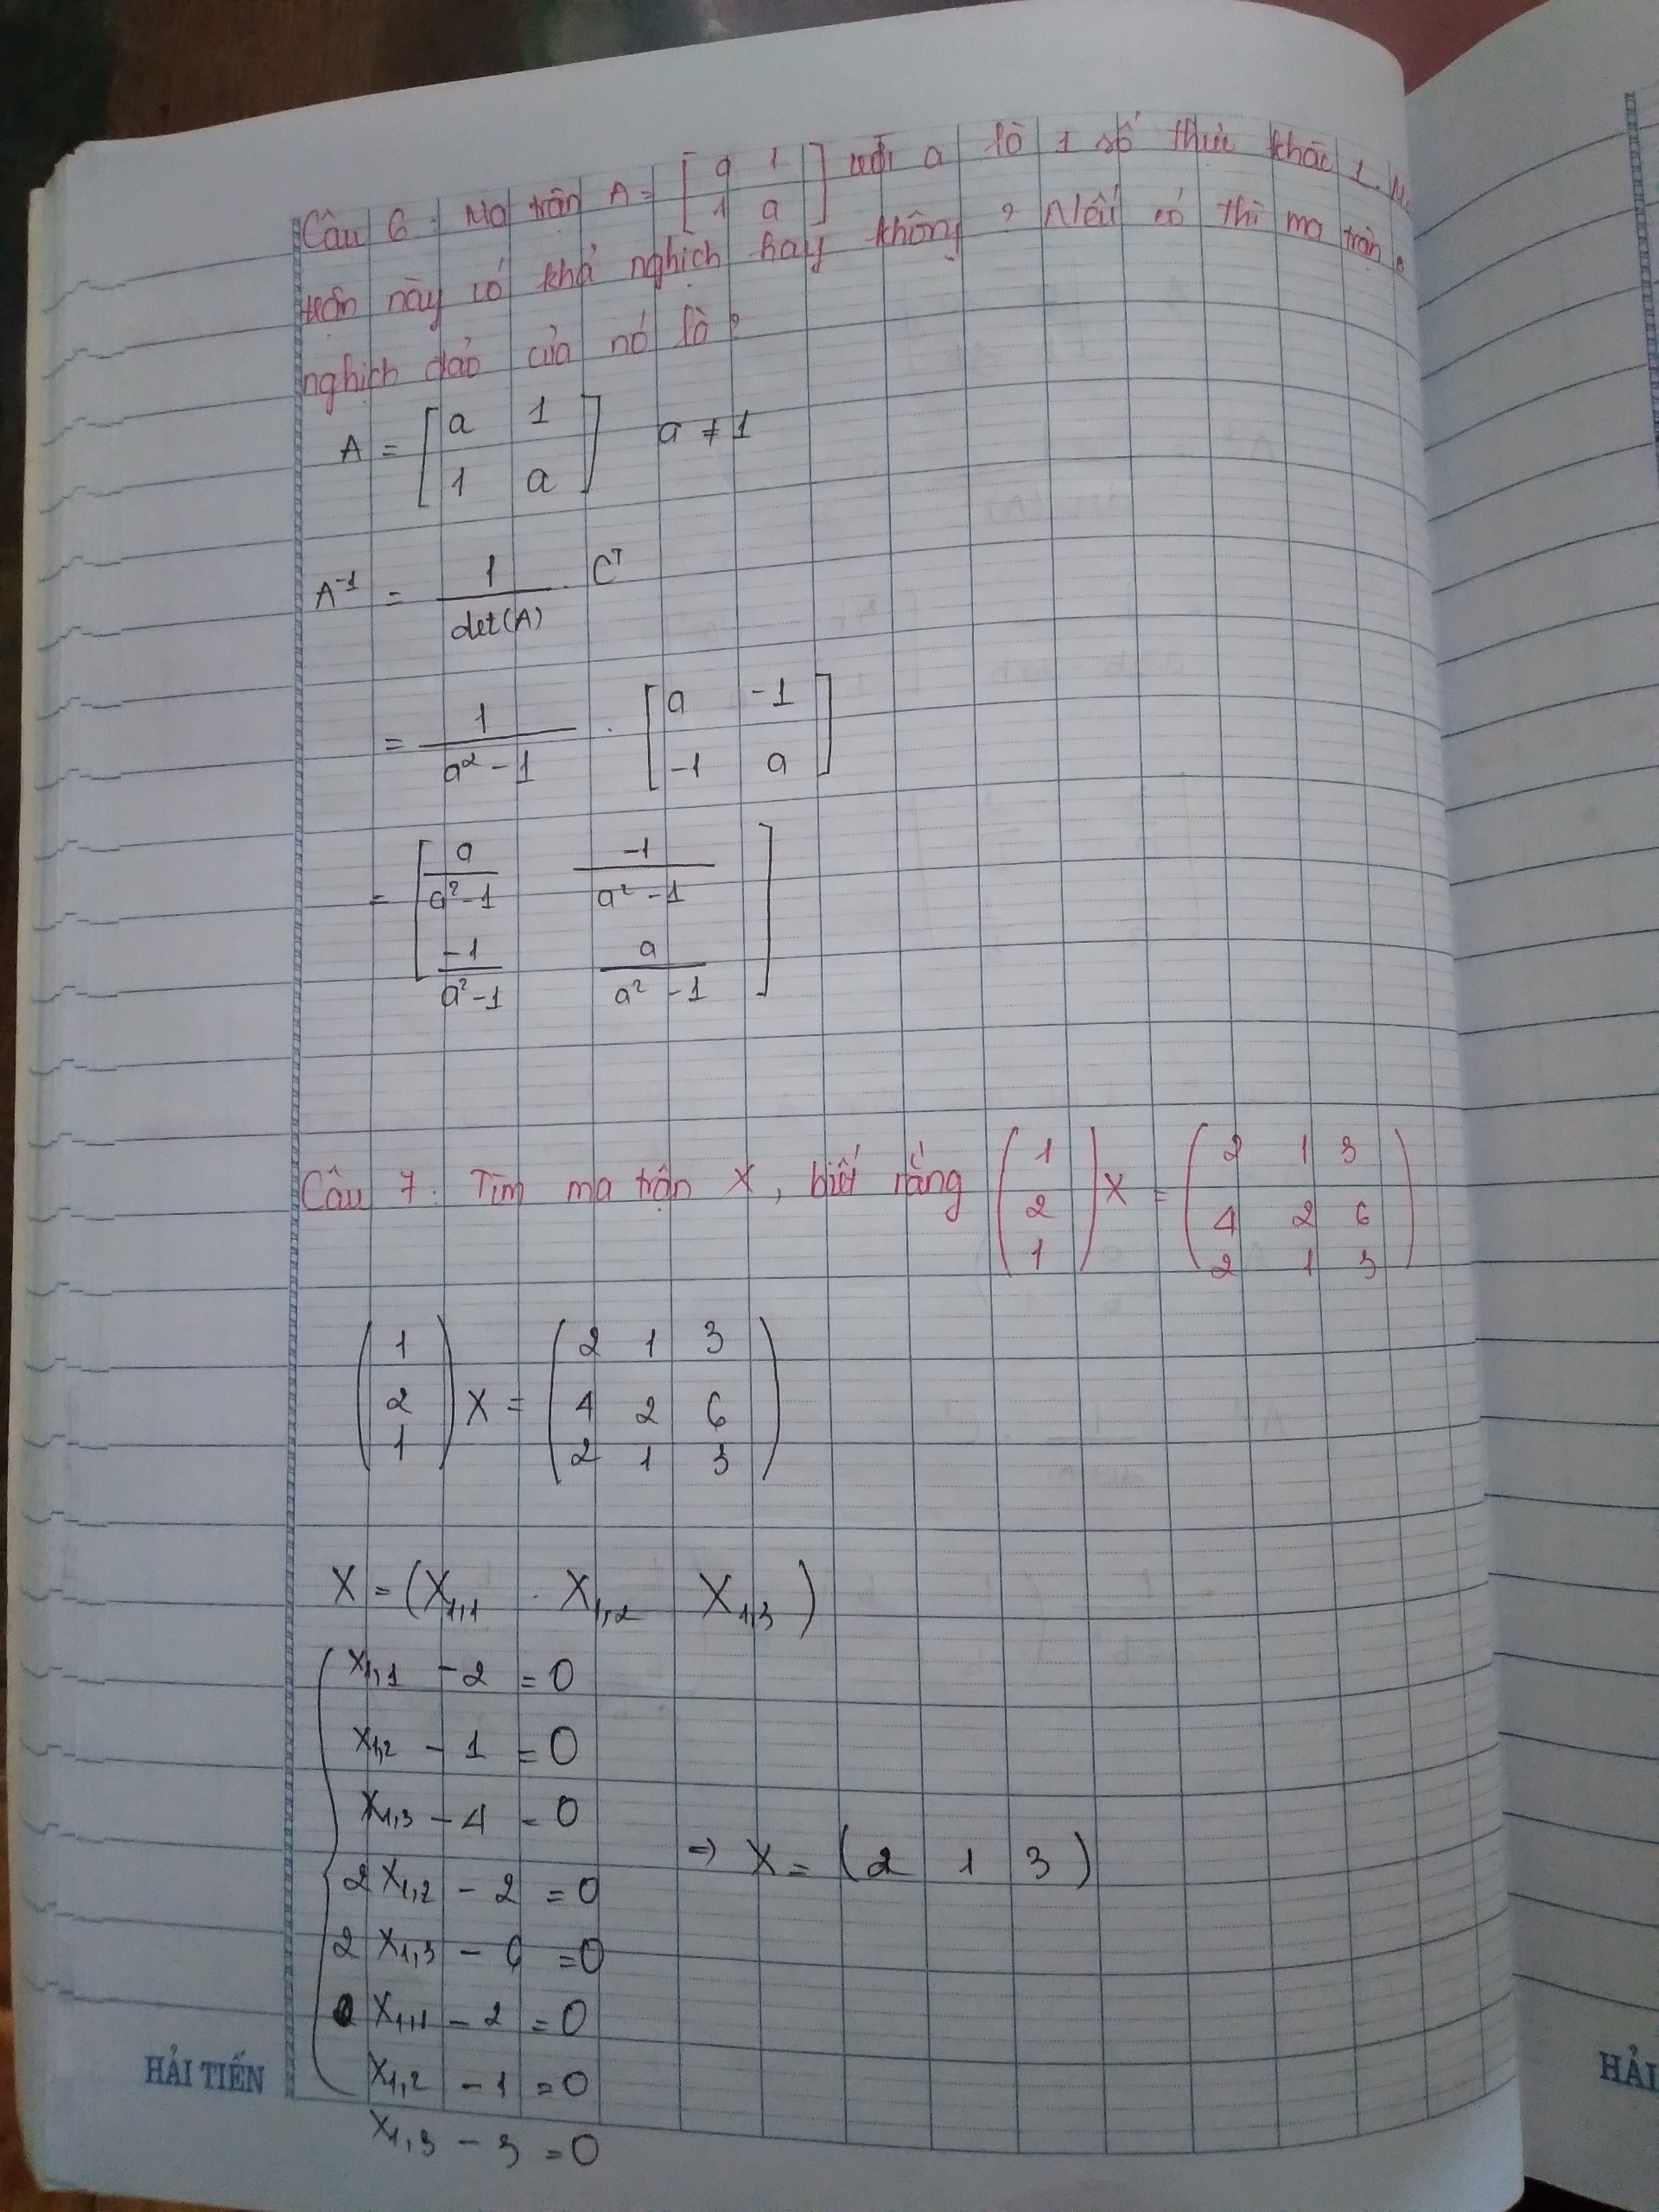 Câu 6: Ma trận A = [a 1] với a là 1 số thực khác 1. M
[1 a]
trận này có khả nghịch hay không? Nếu có thì ma trận
nghịch đảo của nó là?
A = [a 1] a ≠ 1
[1 a]
A⁻¹ = 1/det(A) . Cᵀ
= 1/(a² - 1) . [a -1]
[-1 a]
= [a/(a² - 1) -1/(a² - 1)]
[-1/(a² - 1) a/(a² - 1)]
Câu 7: Tìm ma trận X, biết rằng (1) X = (2 1 3)
(2) (4 2 6)
(1) (2 1 3)
(1) X = (2 1 3)
(2) (4 2 6)
(1) (2 1 3)
X = (X1,1 X1,2 X1,3)
x1,1 - 2 = 0
x1,2 - 1 = 0
x1,3 - 4 = 0
2 x1,2 - 2 = 0
⇒ X = (2 1 3)
2 x1,3 - 6 = 0
x1,1 - 2 = 0
x1,2 - 1 = 0
x1,3 - 3 = 0
HẢI TIẾN
HẢI